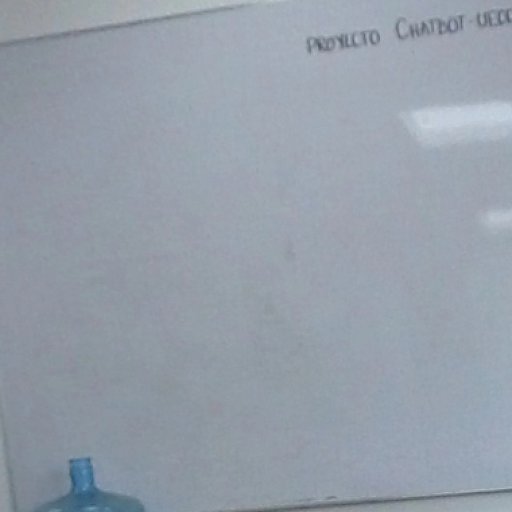 PROYECTO CHATBOT-UECC